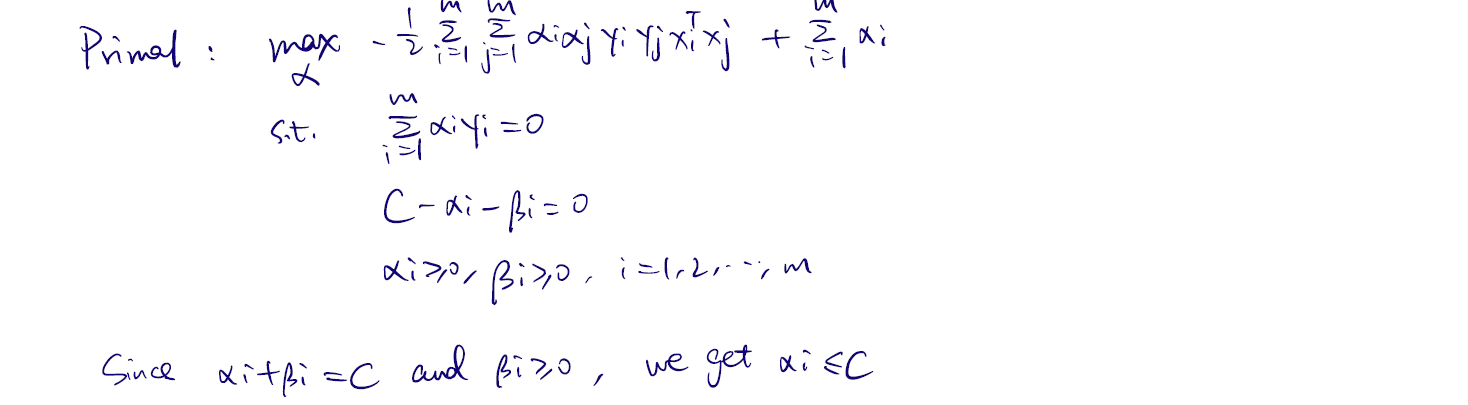 Primal : max_α - 1/2 Σ_{i=1}^{m} Σ_{j=1}^{m} αiαj yi yj xi^T xj + Σ_{i=1}^{m} αi
s.t. Σ_{i=1}^{m} αi yi = 0
C - αi - βi = 0
αi ≥ 0, βi ≥ 0, i = 1, 2, ..., m
Since αi + βi = C and βi ≥ 0, we get αi ≤ C